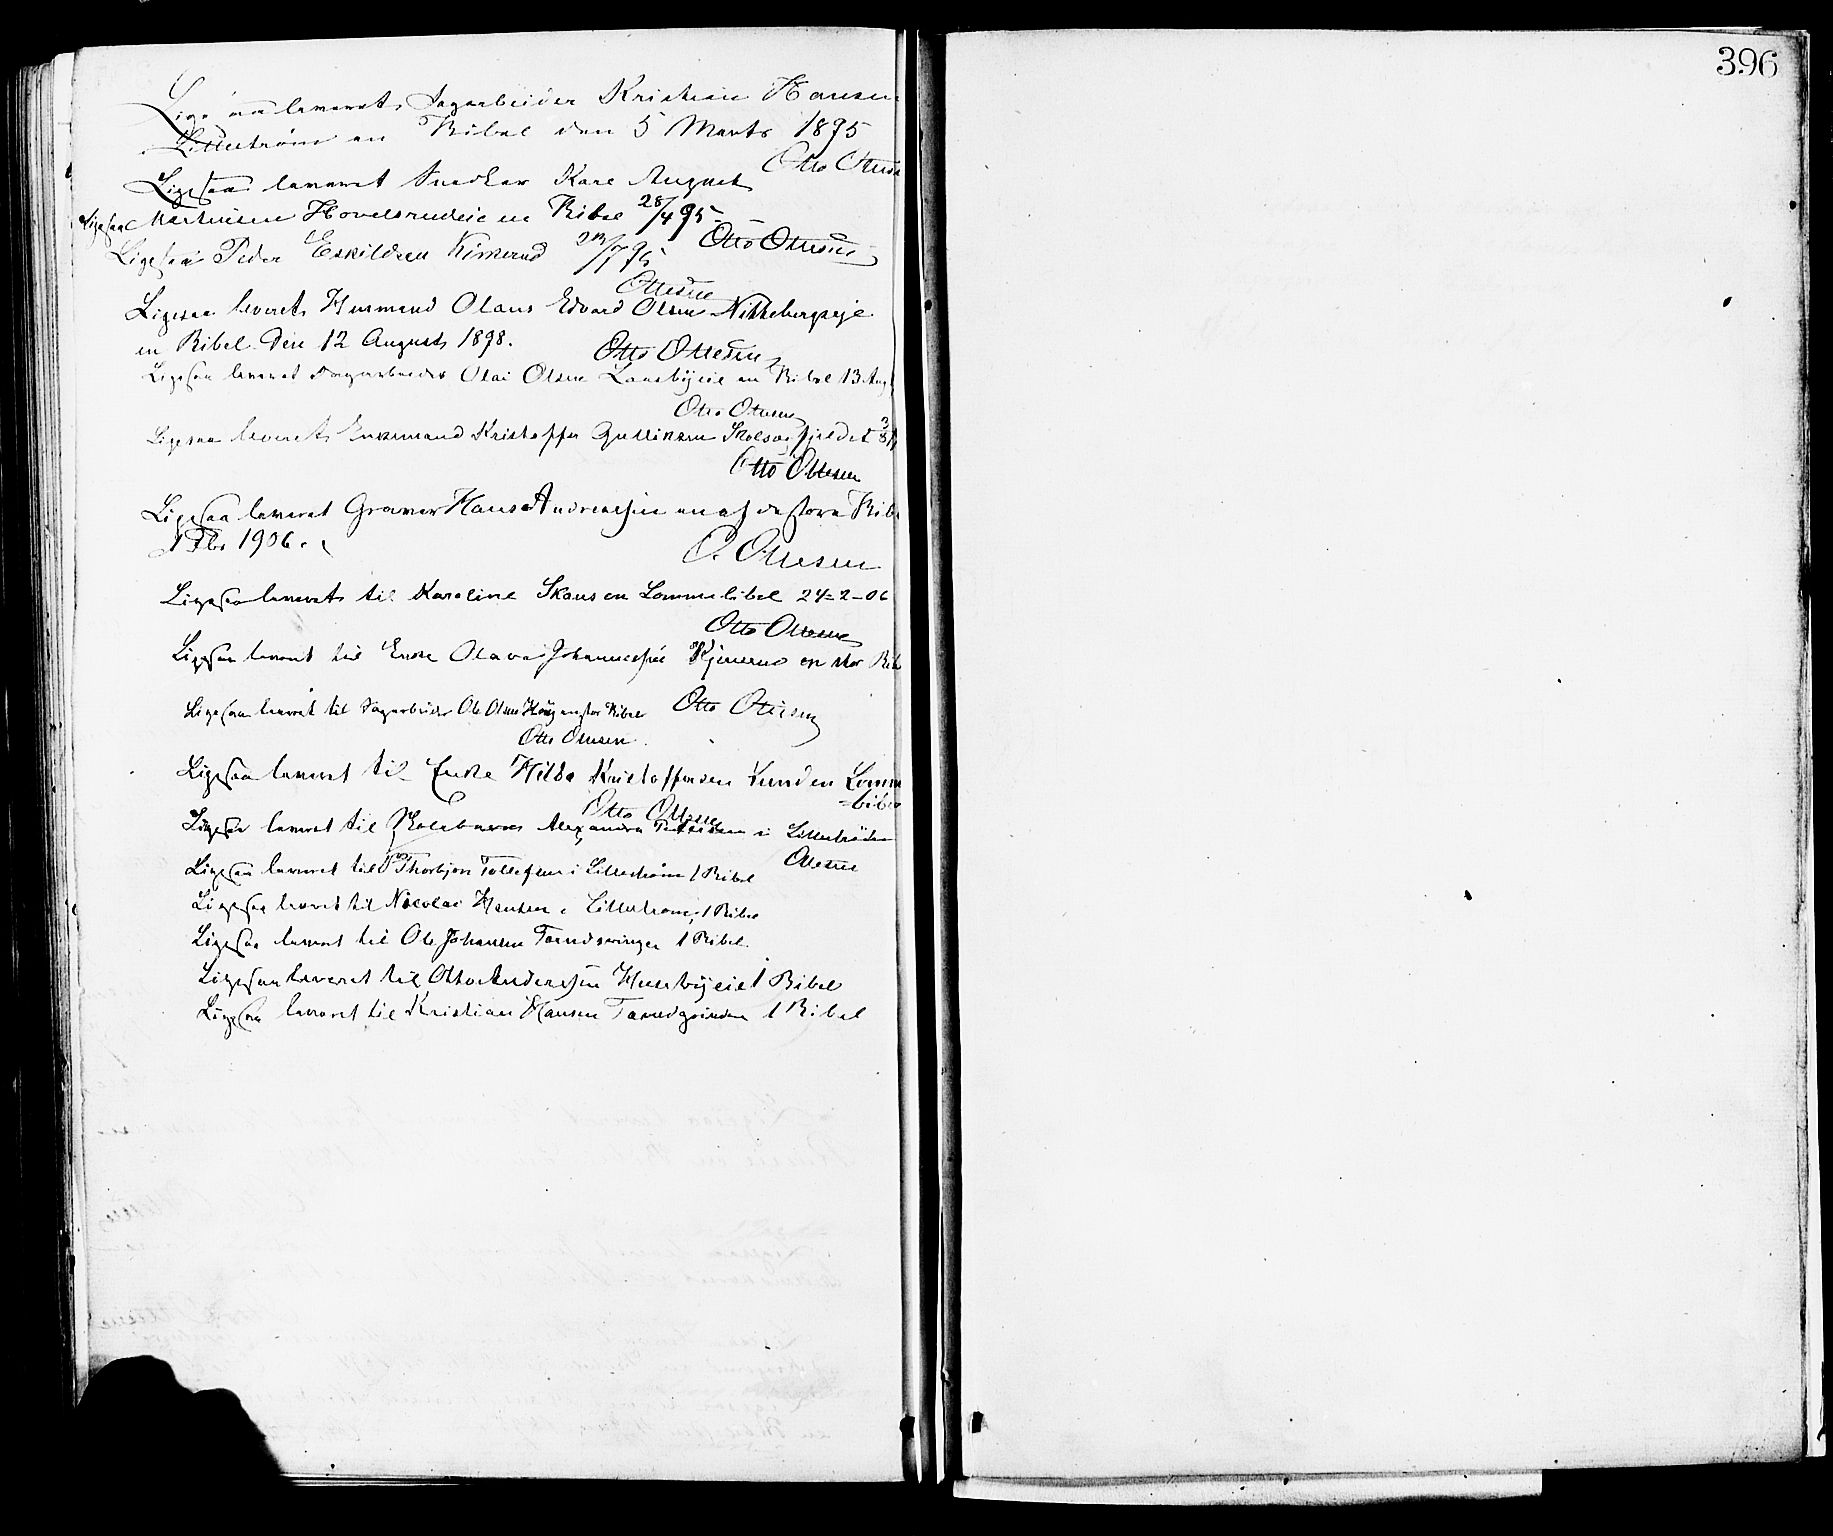 Ligesaa leveret Dagarbeider Kristian Hansen
Lillestrøm en Bibel den 5 Marts 1895
Otto Ottesen
Ligesaa leveret Snedker Karl August
Martinsen Hovelsrudeie en Bibel 28/4 95
Otto Ottesen
Ligesaa Peder Eskildsen Kimerud /7 95
Ottesen
Ligesaa leveret Husmand Olaus Edvard Olsen Nikkebergseje
en Bibel den 12 August 1898.
Otto Ottesen
Ligesaa leveret Dagarbeider Olai Olsen en Bibel 13 Aug
Otto Ottesen
Ligesaa leveret Enkemand Kristoffer Gulliksen
Otto Ottesen
Ligesaa leveret Graver Hans Andreassen en af de store Bibe
1 Febr 1906.
O. Ottesen
Ligesaa leveret til Karoline Skansen Lommebibel 24-2-06
Otto Ottesen
Ligesaa leveret til Enke Olava Johannessen Kjimerud en stor Bib
Ligesaa leveret til Dagarbeider Ole Olsen Haug en stor Bibel
Otto Ottesen
Otto Ottesen
Ligesaa leveret til Enke Hilda Kristoffersen Lomme
=bibel
Otto Ottesen
Ligesaa leveret til Skolebarn Alexandra i Lillestrøm
Ottesen
Ligesaa leveret til Thorbjørn Tollefsen i Lillestrøm 1 Bibel
Ligesaa leveret til Nicolai Hansen i Lillestrøm, 1 Bibel
Ligesaa leveret til Ole Johansen 1 Bibel
Ligesaa leveret til Otto Anderssen Husebyeie 1 Bibel
Ligesaa leveret til Kristian Hansen 1 Bibel
396